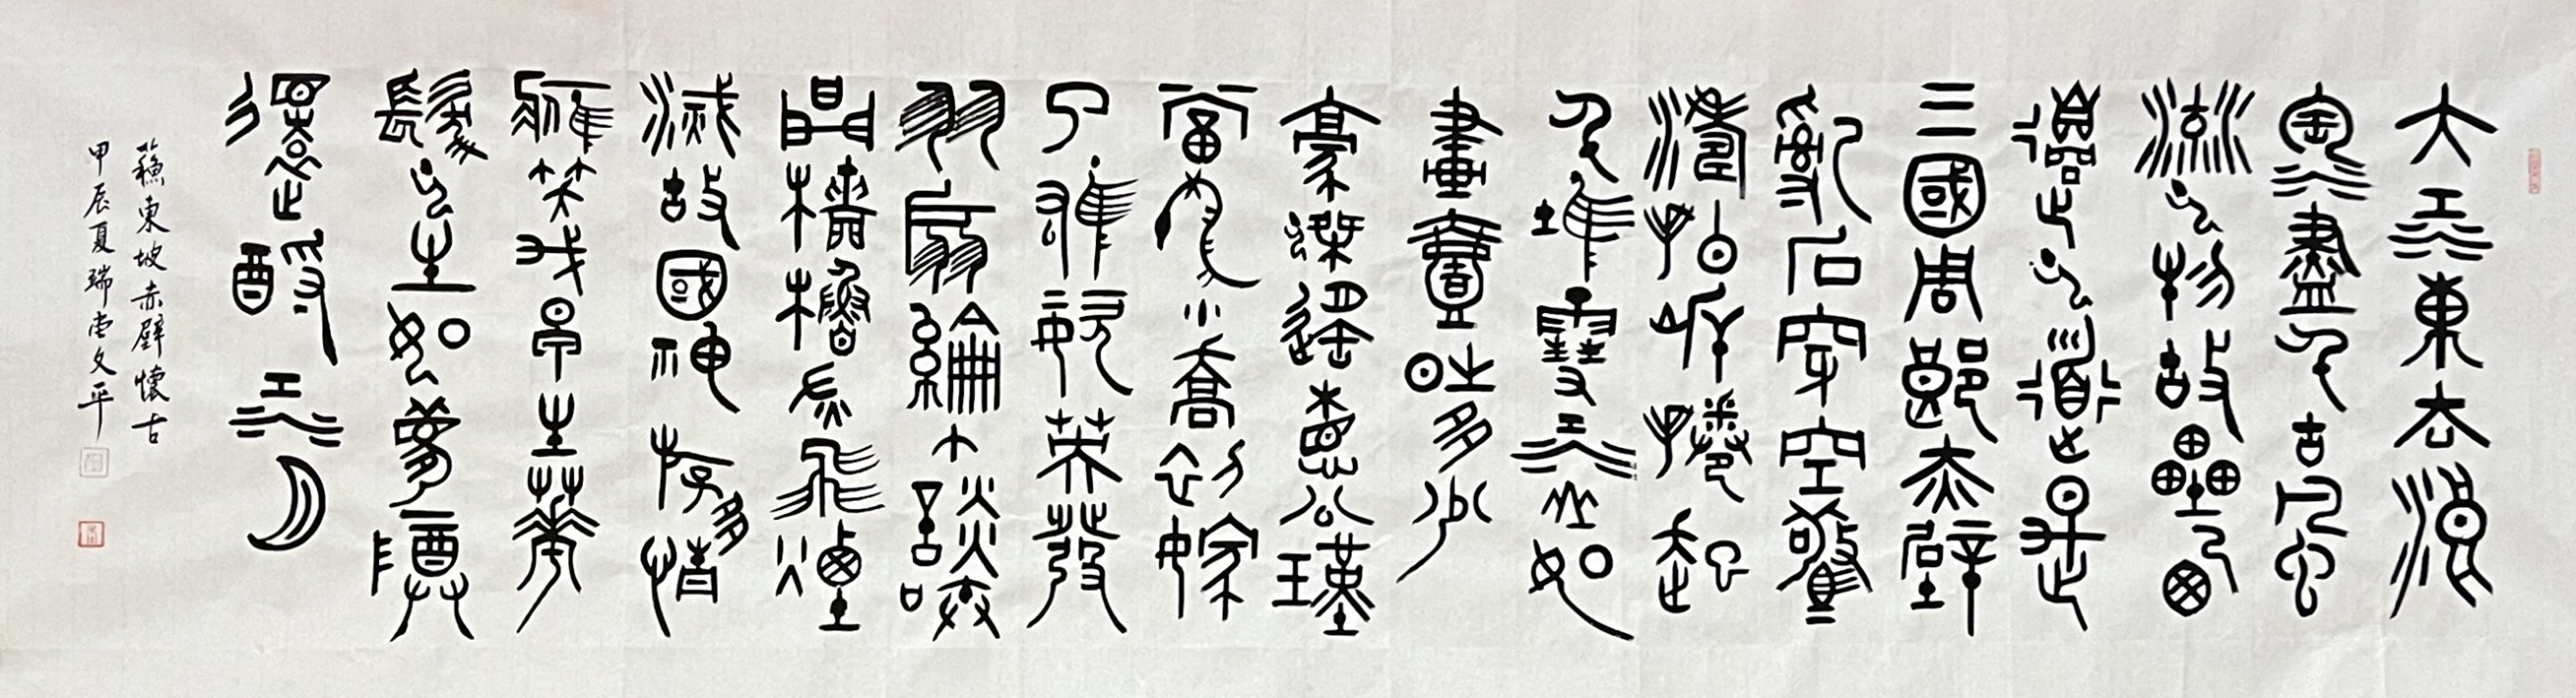 大江東去浪
淘盡千古風
流人物故壘西
邊人道是
三國周郎赤壁
亂石穿空驚
濤拍岸捲起
千堆雪江山如
畫壹時多少
豪傑遙想公瑾
當年小喬初嫁
了雄姿英發
羽扇綸巾談笑
間檣櫓灰飛煙
滅故國神游多情
應笑我早生華
髮人生如夢一尊
還酹江月
蘇東坡赤壁懷古
甲辰夏瑞堂文平